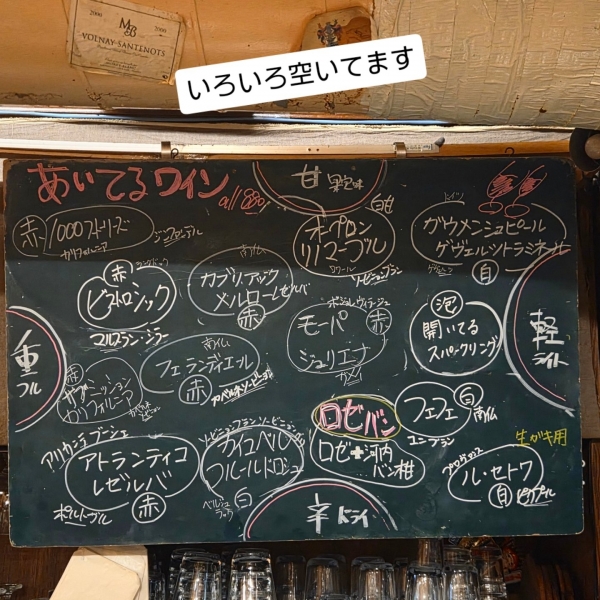 2000
MB
2000
VOLNAY-SANTENOTS
いろいろ空いてます
あいてるワイン
all 880
甘 果実味
赤
1000ストーリーズ
ジンファンデル
カリフォルニア
白
オープロン
リノマーブル
ロワール
ソービニヨンブラン
ドイツ
ガウメンシュピール
ゲヴェルツトラミネール
白
赤
ビストロシック
マルスラン・シラー
南仏
カブリアック
メルローレゼルバ
赤
ボジョレヴィラージュ
モーパ
赤
ジュリエーナ
ガメイ
泡
開いてる
スパークリング
軽
ライト
重
フル
南仏
フェランディエール
赤
カベルネソービニヨン
赤
カリフォルニア
ロゼバン
ロゼ+河内
バン柑
フェフェ
白
南仏
ユニブラン
生ガキ用
アリカンテブーシェ
アトランティコ
レゼルバ
赤
ポルトガル
カイユベル
フルールドロジュ
白
ル・セトワ
白
ピクプール
辛 ドライ